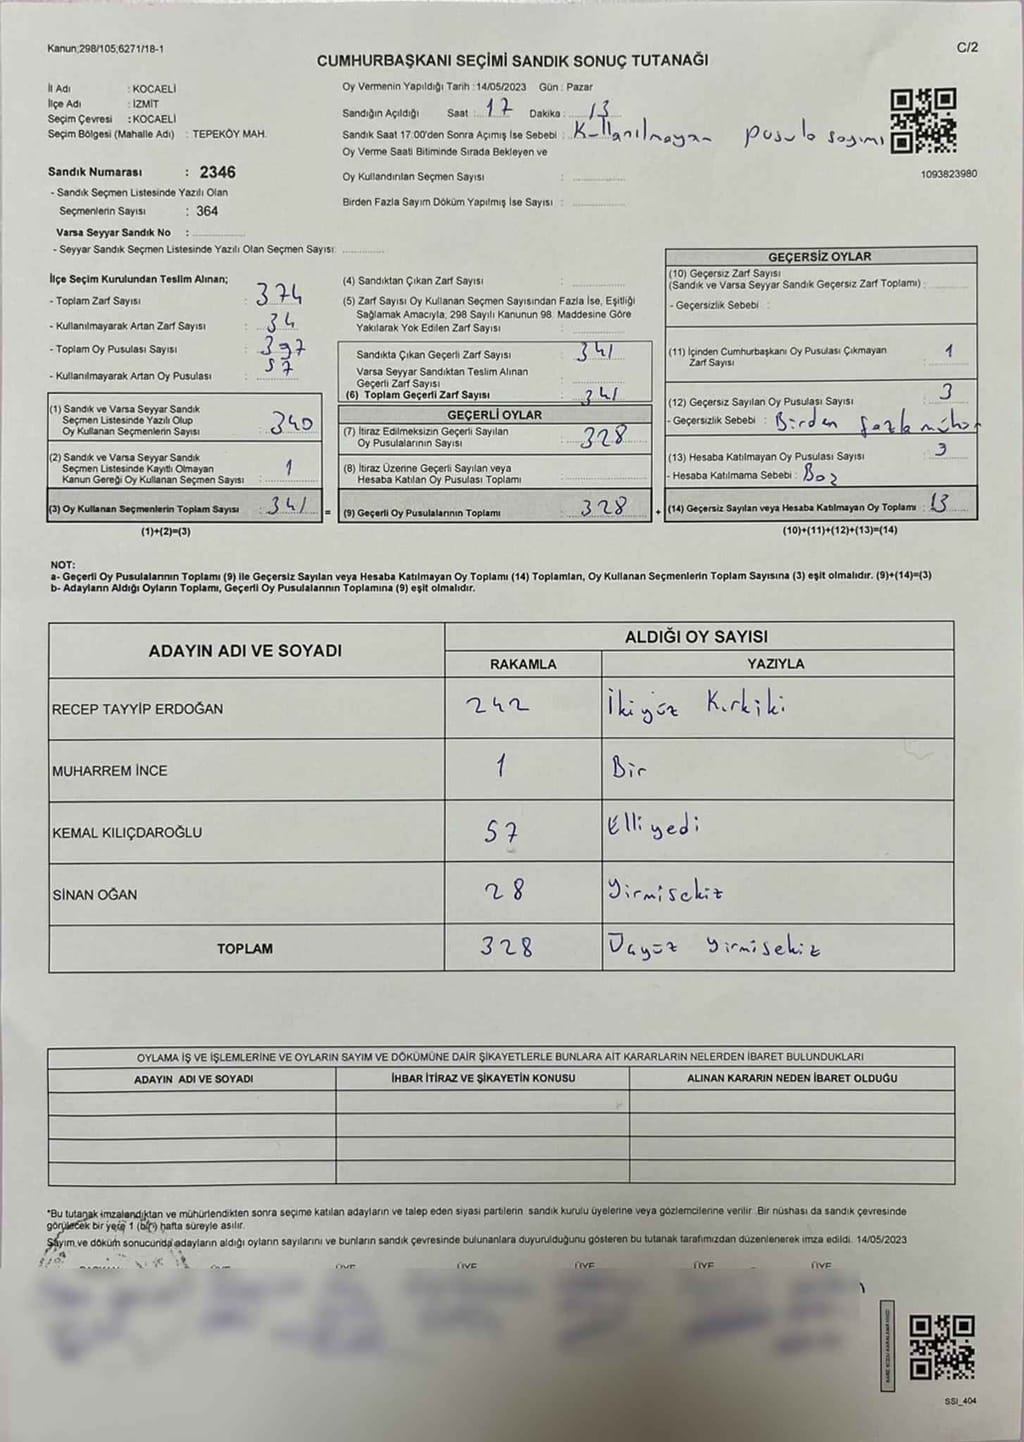 Kanun;298/105,6271/18-1
C/2
CUMHURBAŞKANI SEÇİMİ SANDIK SONUÇ TUTANAĞI
İl Adı : KOCAELİ
İlçe Adı : İZMİT
Seçim Çevresi : KOCAELİ
Seçim Bölgesi (Mahalle Adı) : TEPEKÖY MAH.
Oy Vermenin Yapıldığı Tarih :14/05/2023 Gün : Pazar
Sandığın Açıldığı Saat : 17 Dakika : 13
Sandık Saat 17:00'den Sonra Açımış İse Sebebi : Kullanılmayan pusula sayımı
Oy Verme Saati Bitiminde Sırada Bekleyen ve
Oy Kullandırılan Seçmen Sayısı :
Birden Fazla Sayım Döküm Yapılmış İse Sayısı :
1093823980
Sandık Numarası : 2346
- Sandık Seçmen Listesinde Yazılı Olan
Seçmenlerin Sayısı : 364
Varsa Seyyar Sandık No :
- Seyyar Sandık Seçmen Listesinde Yazılı Olan Seçmen Sayısı:
İlçe Seçim Kurulundan Teslim Alınan;
- Toplam Zarf Sayısı : 374
- Kullanılmayarak Artan Zarf Sayısı : 34
- Toplam Oy Pusulası Sayısı : 397
- Kullanılmayarak Artan Oy Pusulası : 57
(1) Sandık ve Varsa Seyyar Sandık
Seçmen Listesinde Yazılı Olup
Oy Kullanan Seçmenlerin Sayısı : 340
(2) Sandık ve Varsa Seyyar Sandık
Seçmen Listesinde Kayıtlı Olmayan
Kanun Gereği Oy Kullanan Seçmen Sayısı : 1
(3) Oy Kullanan Seçmenlerin Toplam Sayısı : 341 =
(1)+(2)=(3)
(4) Sandıktan Çıkan Zarf Sayısı :
(5) Zarf Sayısı Oy Kullanan Seçmen Sayısından Fazla İse, Eşitliği
Sağlamak Amacıyla, 298 Sayılı Kanunun 98. Maddesine Göre
Yakılarak Yok Edilen Zarf Sayısı :
Sandıkta Çıkan Geçerli Zarf Sayısı : 341
Varsa Seyyar Sandıktan Teslim Alınan
Geçerli Zarf Sayısı :
(6) Toplam Geçerli Zarf Sayısı : 341
GEÇERLİ OYLAR
(7) İtiraz Edilmeksizin Geçerli Sayılan
Oy Pusulalarının Sayısı : 328
(8) İtiraz Üzerine Geçerli Sayılan veya
Hesaba Katılan Oy Pusulası Toplamı :
(9) Geçerli Oy Pusulalarının Toplamı : 328 +
GEÇERSİZ OYLAR
(10) Geçersiz Zarf Sayısı
(Sandık ve Varsa Seyyar Sandık Geçersiz Zarf Toplamı) :
- Geçersizlik Sebebi :
(11) İçinden Cumhurbaşkanı Oy Pusulası Çıkmayan
Zarf Sayısı : 1
(12) Geçersiz Sayılan Oy Pusulası Sayısı : 3
- Geçersizlik Sebebi : Birden fazla mühür
(13) Hesaba Katılmayan Oy Pusulası Sayısı : 3
- Hesaba Katılmama Sebebi : Boş
(14) Geçersiz Sayılan veya Hesaba Katılmayan Oy Toplamı : 13
(10)+(11)+(12)+(13)=(14)
NOT:
a- Geçerli Oy Pusulalarının Toplamı (9) ile Geçersiz Sayılan veya Hesaba Katılmayan Oy Toplamı (14) Toplamları, Oy Kullanan Seçmenlerin Toplam Sayısına (3) eşit olmalıdır. (9)+(14)=(3)
b- Adayların Aldığı Oyların Toplamı, Geçerli Oy Pusulalarının Toplamına (9) eşit olmalıdır.
ADAYIN ADI VE SOYADI
ALDIĞI OY SAYISI
RAKAMLA YAZIYLA
RECEP TAYYİP ERDOĞAN 242 İkiyüz Kırkiki
MUHARREM İNCE 1 Bir
KEMAL KILIÇDAROĞLU 57 Elliyedi
SİNAN OĞAN 28 Yirmisekiz
TOPLAM 328 Üçyüz yirmisekiz
OYLAMA İŞ VE İŞLEMLERİNE VE OYLARIN SAYIM VE DÖKÜMÜNE DAİR ŞİKAYETLERLE BUNLARA AİT KARARLARIN NELERDEN İBARET BULUNDUKLARI
ADAYIN ADI VE SOYADI İHBAR İTİRAZ VE ŞİKAYETİN KONUSU ALINAN KARARIN NEDEN İBARET OLDUĞU
*Bu tutanak imzalandıktan ve mühürlendikten sonra seçime katılan adayların ve talep eden siyasi partilerin sandık kurulu üyelerine veya gözlemcilerine verilir. Bir nüshası da sandık çevresinde
görülecek bir yere 1 (bir) hafta süreyle asılır.
Sayım ve döküm sonucunda adayların aldığı oyların sayılarını ve bunların sandık çevresinde bulunanlara duyurulduğunu gösteren bu tutanak tarafımızdan düzenlenerek imza edildi. 14/05/2023
ÜYE ÜYE ÜYE ÜYE ÜYE ÜYE
SSİ_404